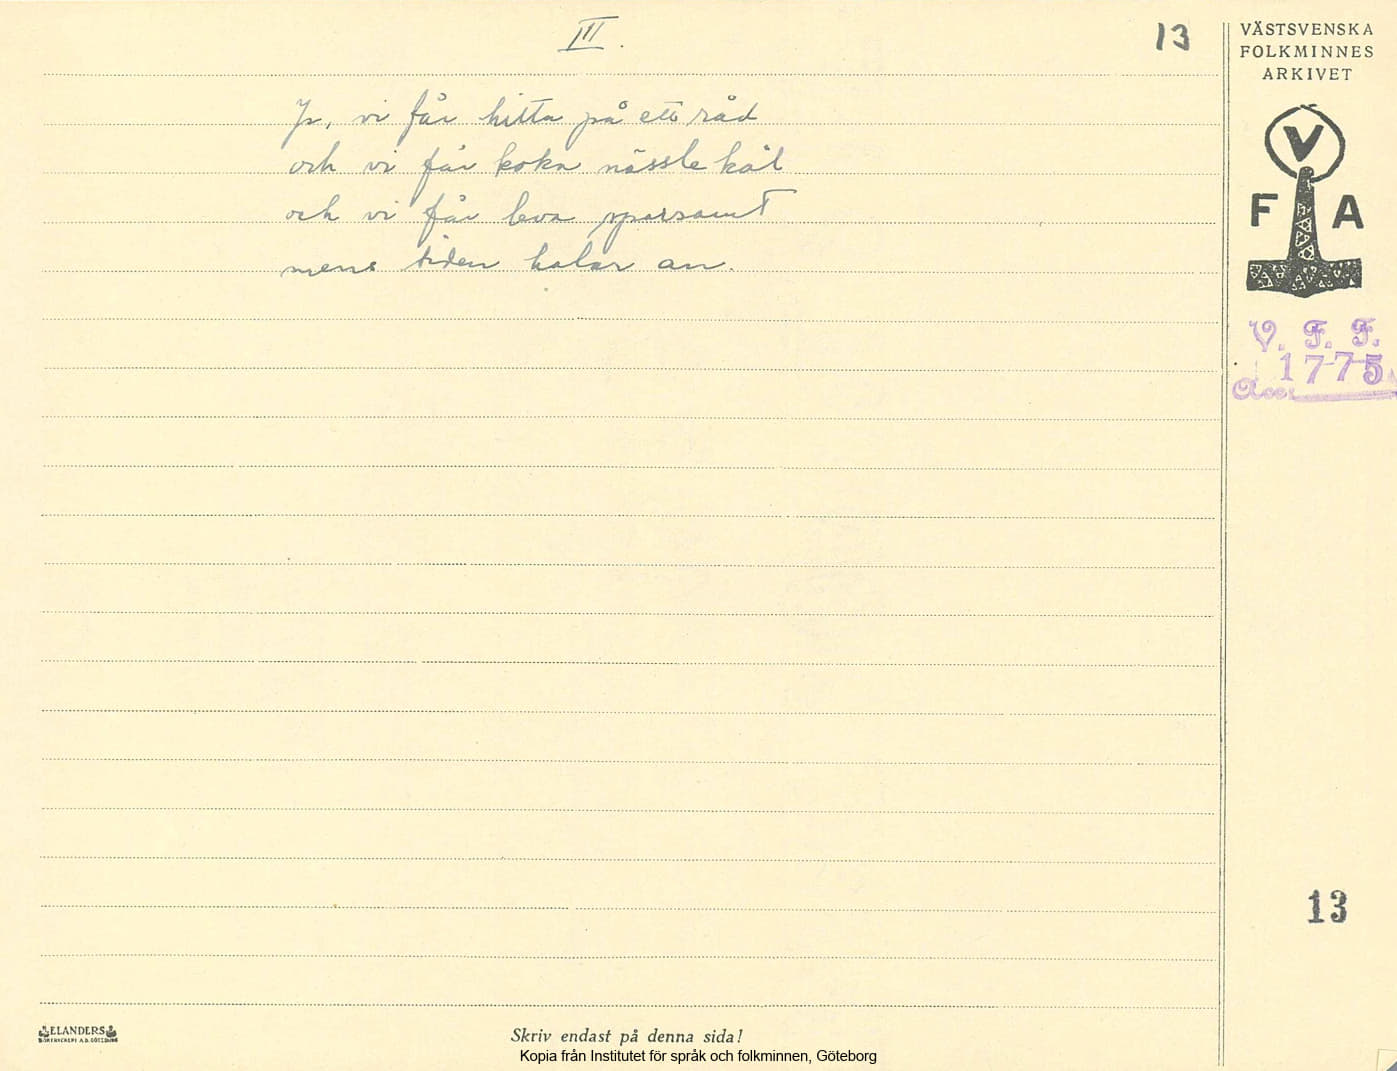 III.
13
VÄSTSVENSKA
FOLKMINNES
ARKIVET
V
F A
Ja, vi får hitta på ett råd
och vi får koka nässlekål
och vi får leva sparsamt
mens tiden halar an.
V. F. F.
1775
Acc.
13
ELANDERS
Skriv endast på denna sida!
Kopia från Institutet för språk och folkminnen, Göteborg